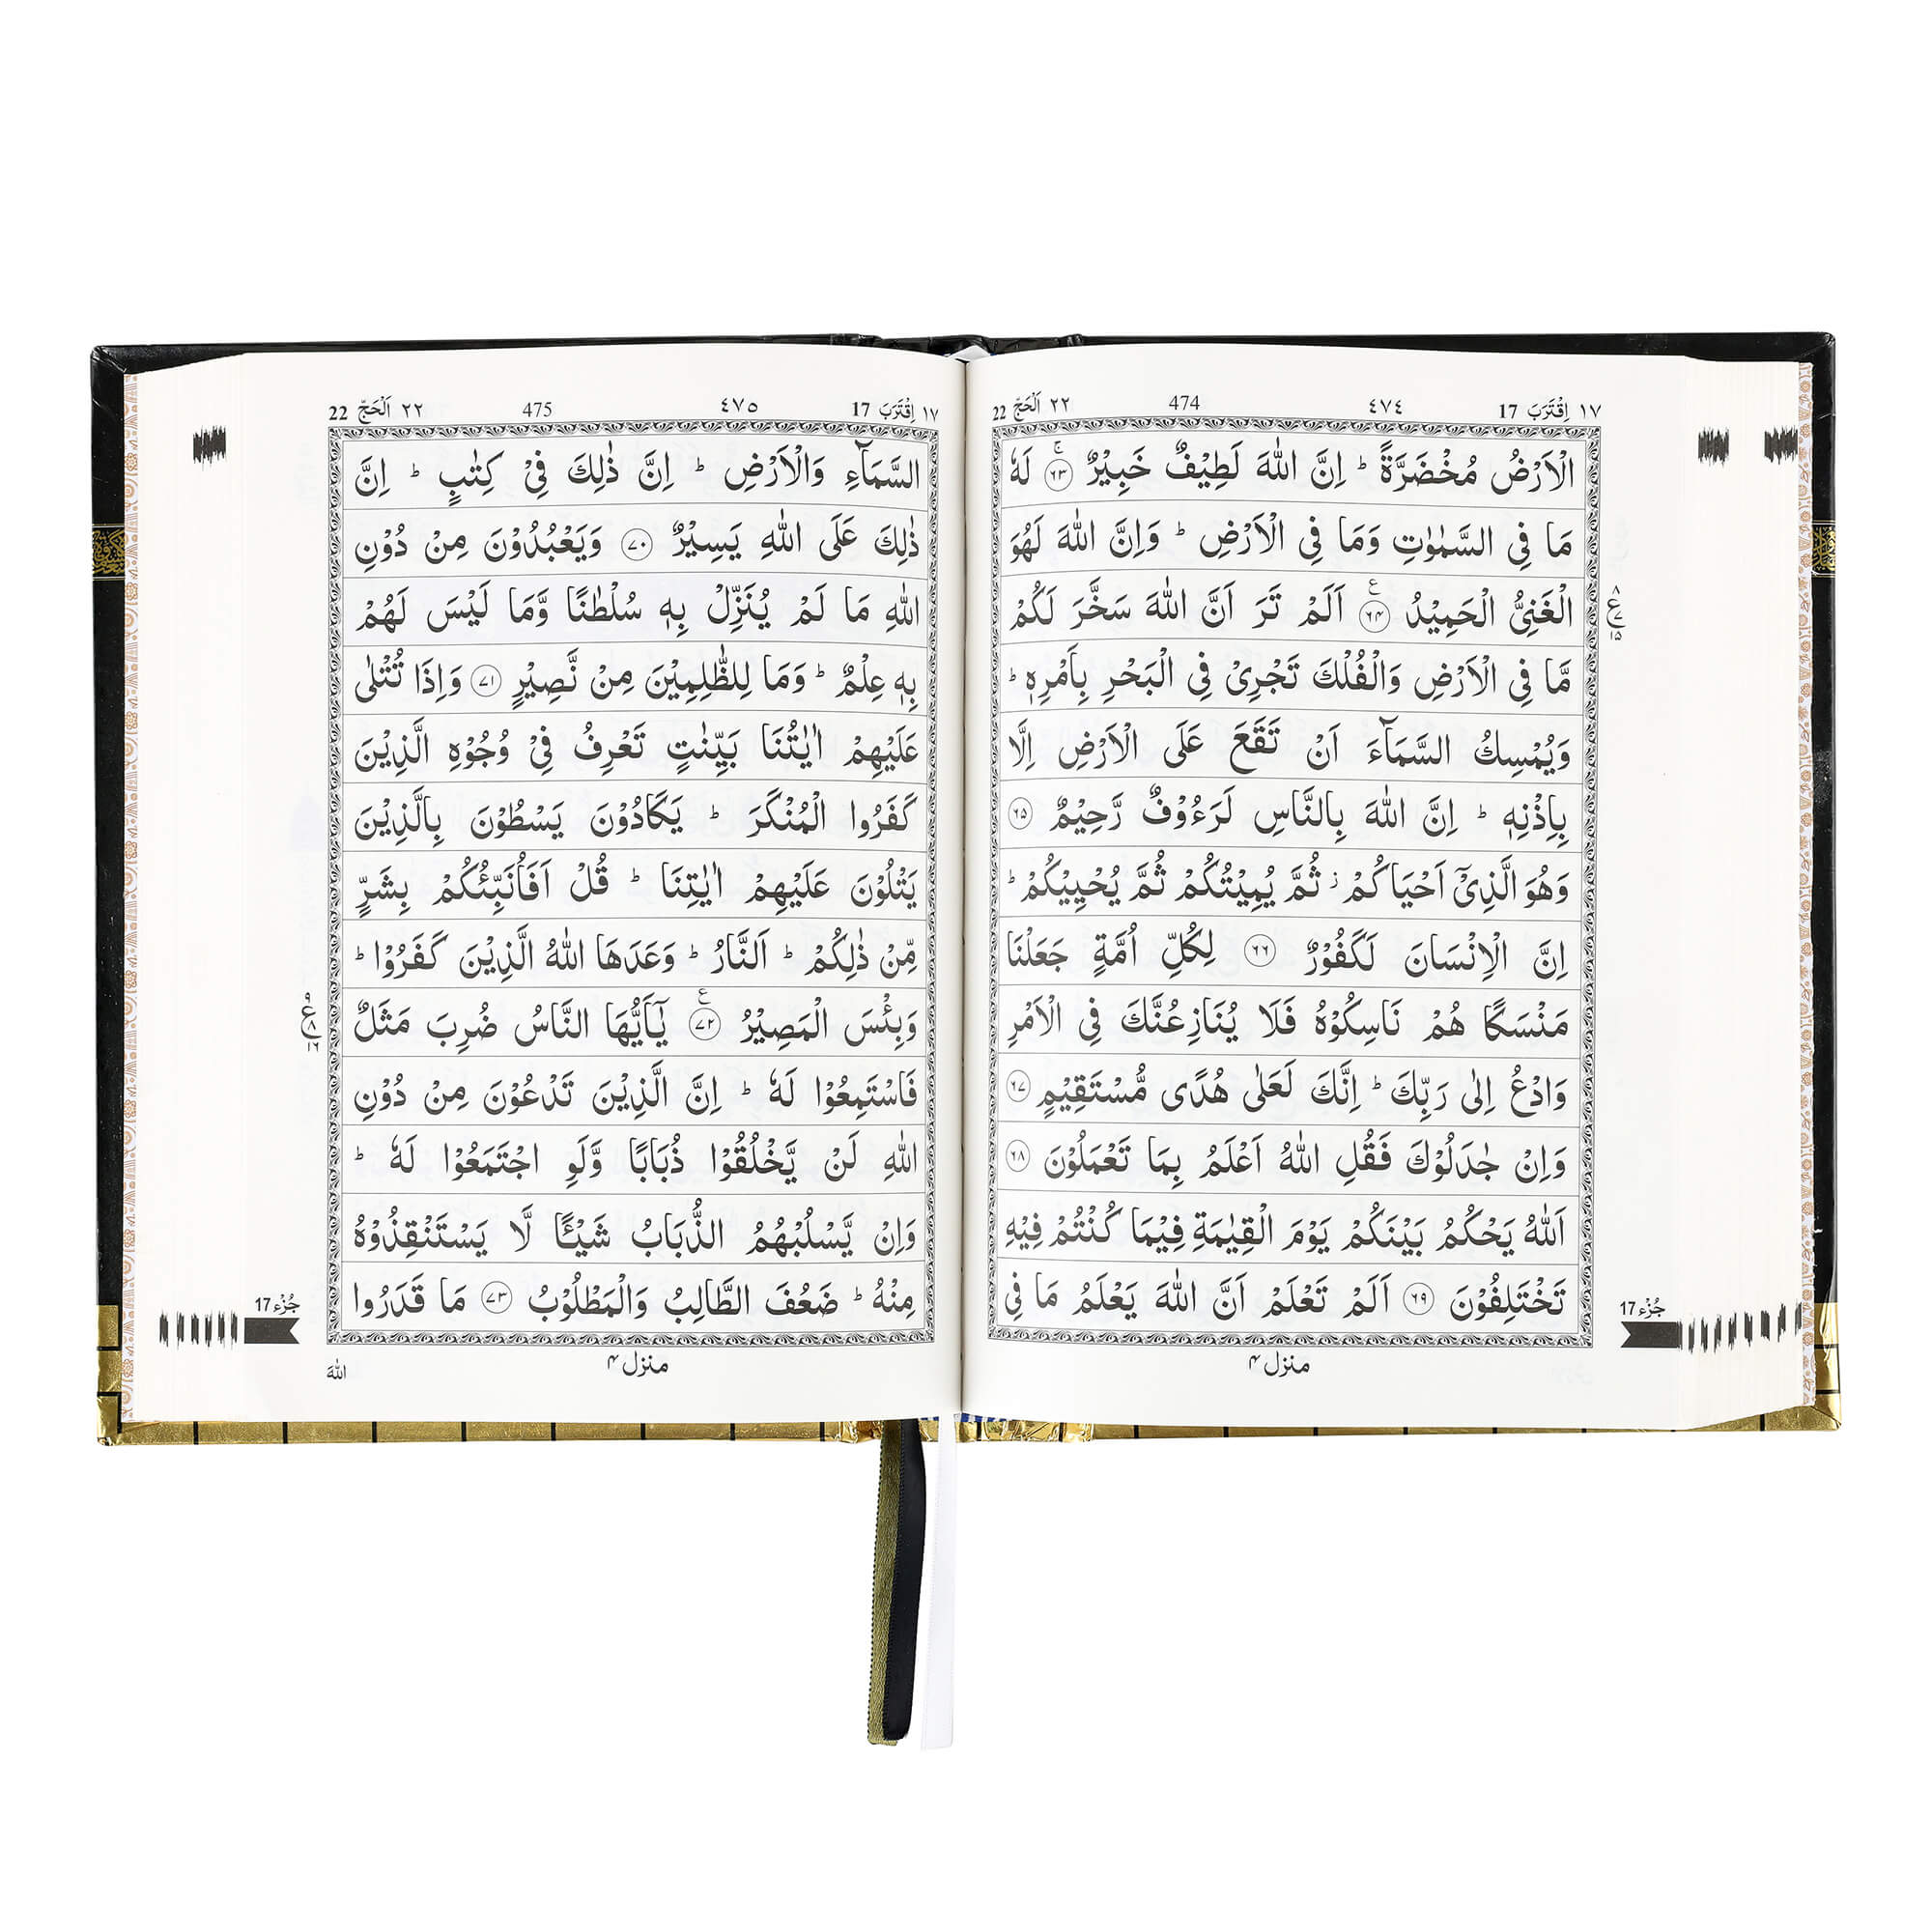 ١٧ اِقْتَرَبَ 17 ٤٧٤ 474 ٢٢ اَلْحَجّ 22
الْاَرْضُ مُخْضَرَّةً ؕ اِنَّ اللّٰهَ لَطِيْفٌ خَبِيْرٌ ۚ ﴿۶۳﴾ لَهٗ
مَا فِي السَّمٰوٰتِ وَمَا فِي الْاَرْضِ ؕ وَاِنَّ اللّٰهَ لَهُوَ
الْغَنِيُّ الْحَمِيْدُ ﴿۶۴﴾ ع اَلَمْ تَرَ اَنَّ اللّٰهَ سَخَّرَ لَكُمْ
مَّا فِي الْاَرْضِ وَالْفُلْكَ تَجْرِيْ فِي الْبَحْرِ بِاَمْرِهٖ ؕ
وَيُمْسِكُ السَّمَآءَ اَنْ تَقَعَ عَلَى الْاَرْضِ اِلَّا
بِاِذْنِهٖ ؕ اِنَّ اللّٰهَ بِالنَّاسِ لَرَءُوْفٌ رَّحِيْمٌ ﴿۶۵﴾
وَهُوَ الَّذِيْٓ اَحْيَاكُمْ ز ثُمَّ يُمِيْتُكُمْ ثُمَّ يُحْيِيْكُمْ ؕ
اِنَّ الْاِنْسَانَ لَكَفُوْرٌ ﴿۶۶﴾ لِكُلِّ اُمَّةٍ جَعَلْنَا
مَنْسَكًا هُمْ نَاسِكُوْهُ فَلَا يُنَازِعُنَّكَ فِي الْاَمْرِ
وَادْعُ اِلٰى رَبِّكَ ؕ اِنَّكَ لَعَلٰى هُدًى مُّسْتَقِيْمٍ ﴿۶۷﴾
وَاِنْ جٰدَلُوْكَ فَقُلِ اللّٰهُ اَعْلَمُ بِمَا تَعْمَلُوْنَ ﴿۶۸﴾
اَللّٰهُ يَحْكُمُ بَيْنَكُمْ يَوْمَ الْقِيٰمَةِ فِيْمَا كُنْتُمْ فِيْهِ
تَخْتَلِفُوْنَ ﴿۶۹﴾ اَلَمْ تَعْلَمْ اَنَّ اللّٰهَ يَعْلَمُ مَا فِي
منزل ۴
٨ ع ٧ ١٥
جُزْء 17
١٧ اِقْتَرَبَ 17 ٤٧٥ 475 ٢٢ اَلْحَجّ 22
السَّمَآءِ وَالْاَرْضِ ؕ اِنَّ ذٰلِكَ فِيْ كِتٰبٍ ؕ اِنَّ
ذٰلِكَ عَلَى اللّٰهِ يَسِيْرٌ ﴿۷۰﴾ وَيَعْبُدُوْنَ مِنْ دُوْنِ
اللّٰهِ مَا لَمْ يُنَزِّلْ بِهٖ سُلْطٰنًا وَّمَا لَيْسَ لَهُمْ
بِهٖ عِلْمٌ ؕ وَمَا لِلظّٰلِمِيْنَ مِنْ نَّصِيْرٍ ﴿۷۱﴾ وَاِذَا تُتْلٰى
عَلَيْهِمْ اٰيٰتُنَا بَيِّنٰتٍ تَعْرِفُ فِيْ وُجُوْهِ الَّذِيْنَ
كَفَرُوا الْمُنْكَرَ ؕ يَكَادُوْنَ يَسْطُوْنَ بِالَّذِيْنَ
يَتْلُوْنَ عَلَيْهِمْ اٰيٰتِنَا ؕ قُلْ اَفَاُنَبِّئُكُمْ بِشَرٍّ
مِّنْ ذٰلِكُمْ ؕ اَلنَّارُ ؕ وَعَدَهَا اللّٰهُ الَّذِيْنَ كَفَرُوْا ؕ
وَبِئْسَ الْمَصِيْرُ ﴿۷۲﴾ ع يٰٓاَيُّهَا النَّاسُ ضُرِبَ مَثَلٌ
فَاسْتَمِعُوْا لَهٗ ؕ اِنَّ الَّذِيْنَ تَدْعُوْنَ مِنْ دُوْنِ
اللّٰهِ لَنْ يَّخْلُقُوْا ذُبَابًا وَّلَوِ اجْتَمَعُوْا لَهٗ ؕ
وَاِنْ يَّسْلُبْهُمُ الذُّبَابُ شَيْـًٔا لَّا يَسْتَنْقِذُوْهُ
مِنْهُ ؕ ضَعُفَ الطَّالِبُ وَالْمَطْلُوْبُ ﴿۷۳﴾ مَا قَدَرُوا
منزل ۴
اللّٰهَ
ع ٨ ١٦
جُزْء 17